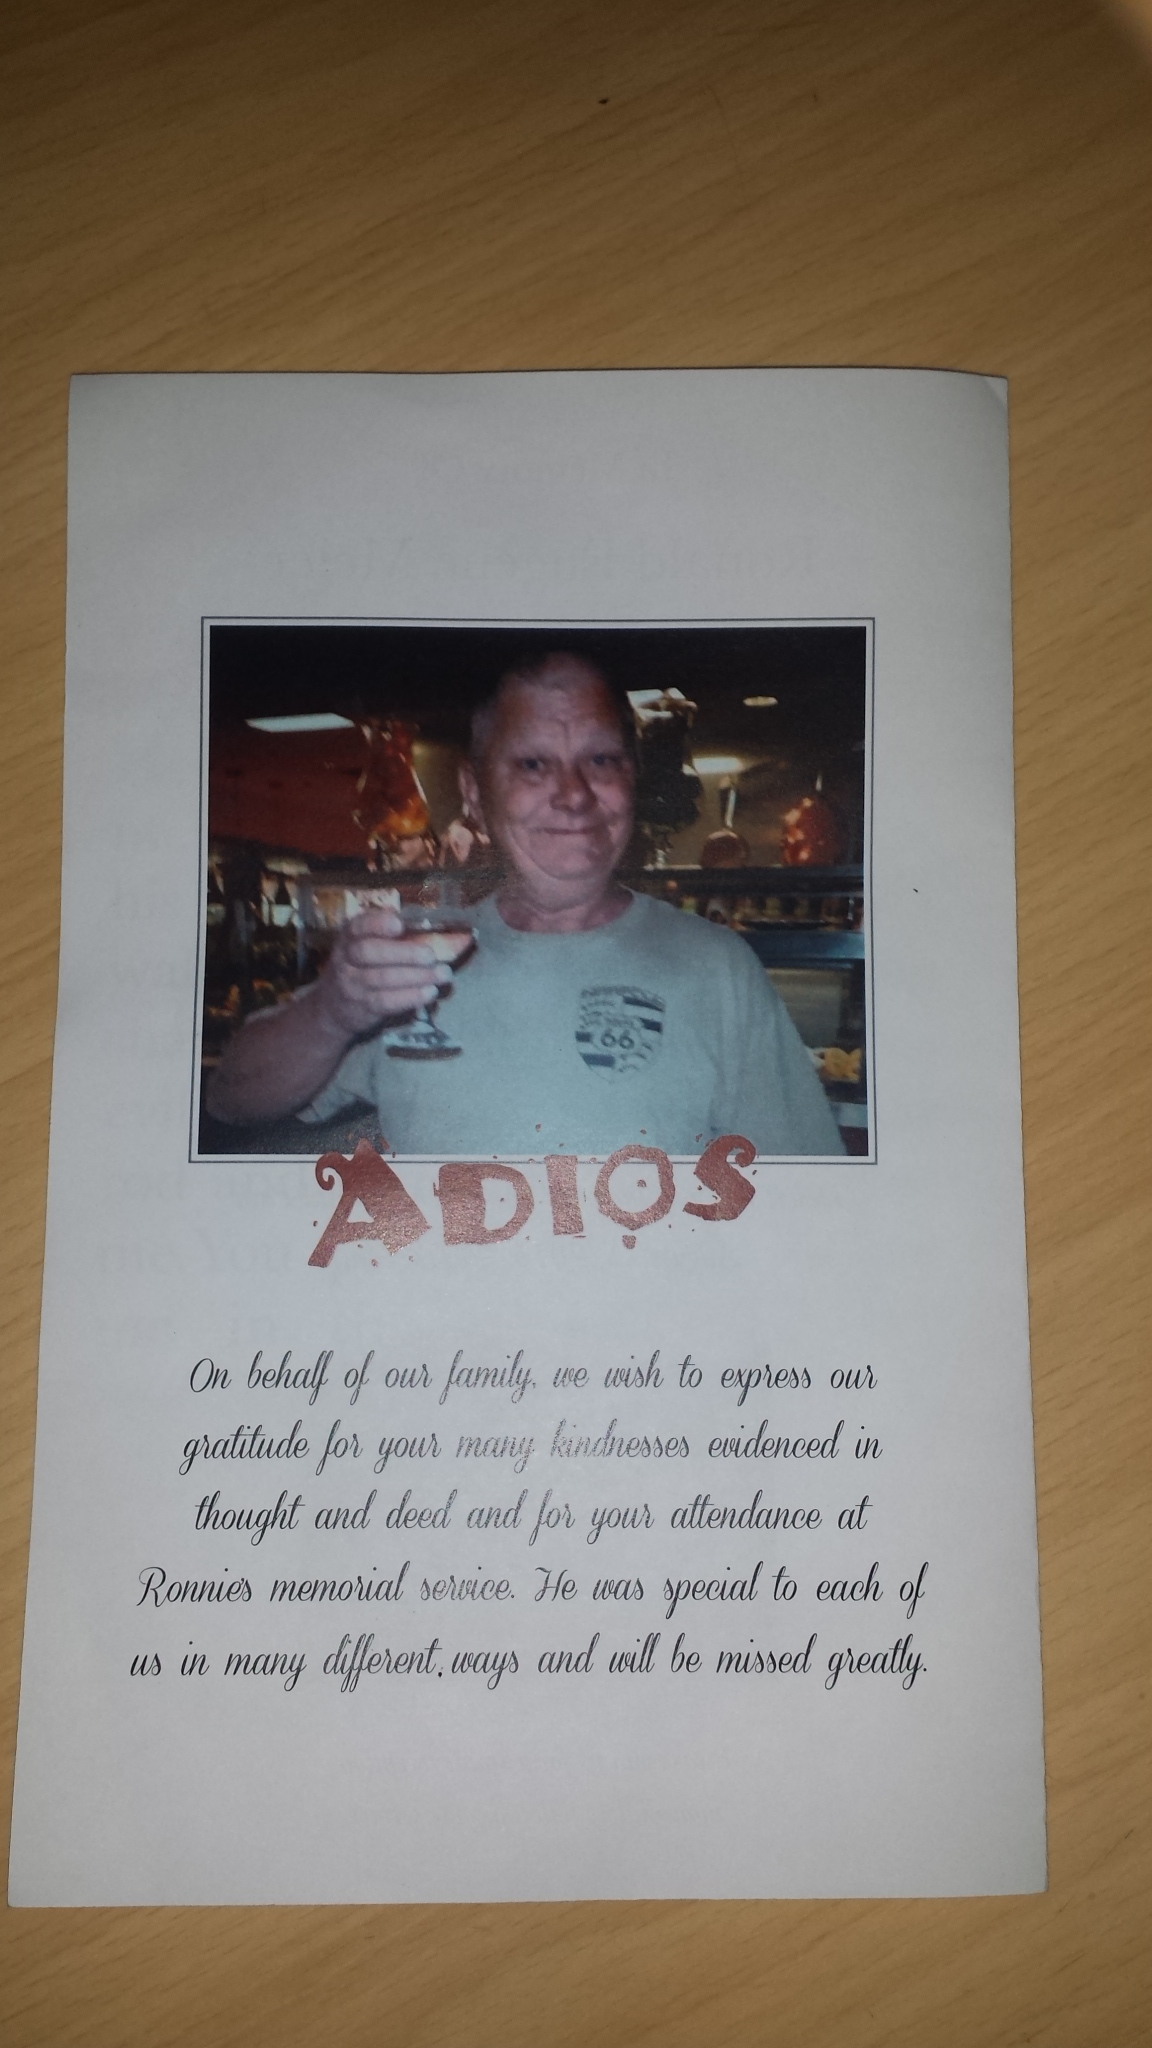 66
ADIOS
On behalf of our family, we wish to express our
gratitude for your many kindnesses evidenced in
thought and deed and for your attendance at
Ronnie's memorial service. He was special to each of
us in many different ways and will be missed greatly.